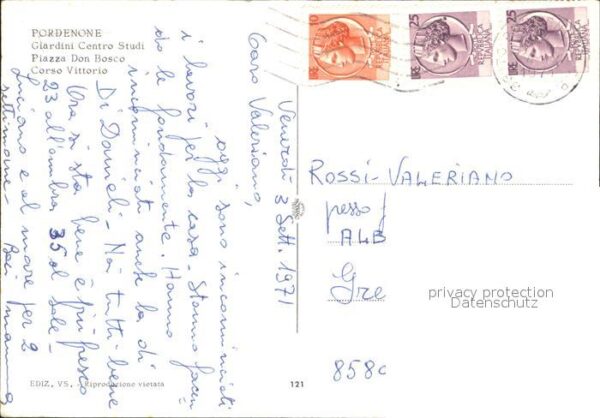 PORDENONE
Giardini Centro Studi
Piazza Don Bosco
Corso Vittorio
Venerdì 3 Sett. 1971
Caro Valeriano,
oggi sono incominciati
i lavori per la casa - Stanno facen
do le fondamente. Hanno
incominciati anche la di
Di Danieli - Noi tutti bene
Ora si sta bene è più fresco
23 all'ombra 35 al sole -
Luciano e al mare per 2
settimane - Baci mamma
ROSSI-VALERIANO
presso
ALB
Gre
858c
privacy protection
Datenschutz
EDIZ. VS. - Riproduzione vietata
121
10
LIRE
25
LIRE
REPUBBLICA
ITALIANA
25
LIRE